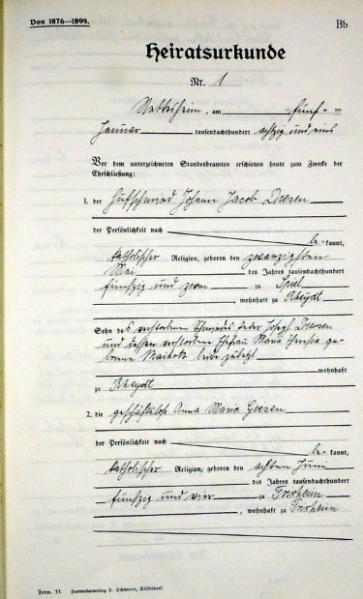 Von 1876—1899.
Bb
Heiratsurkunde
Nr. 1
am fünf ten
Januar tausendachthundert achtzig und eins
Vor dem unterzeichneten Standesbeamten erschienen heute zum Zwecke der
Eheschließung:
1. der Hufschmied Johann Jacob Driesen
der Persönlichkeit nach
be kannt,
katholischer Religion, geboren den zwanzigsten
Mai des Jahres tausendachthundert
fünfzig und zwei zu
, wohnhaft zu Rheydt
Sohn des verstorbenen Joseph Driesen
und dessen verstorbene Ehefrau Maria ge-
borene zuletzt
wohnhaft
zu Rheydt
2. die geschäftslose Anna Maria Giesen
der Persönlichkeit nach
be kannt,
katholischer Religion, geboren den achten Juni
des Jahres tausendachthundert
fünfzig und vier zu Frixheim
, wohnhaft zu Frixheim
Form. 11. Formularverlag L. Schwann, Düsseldorf.